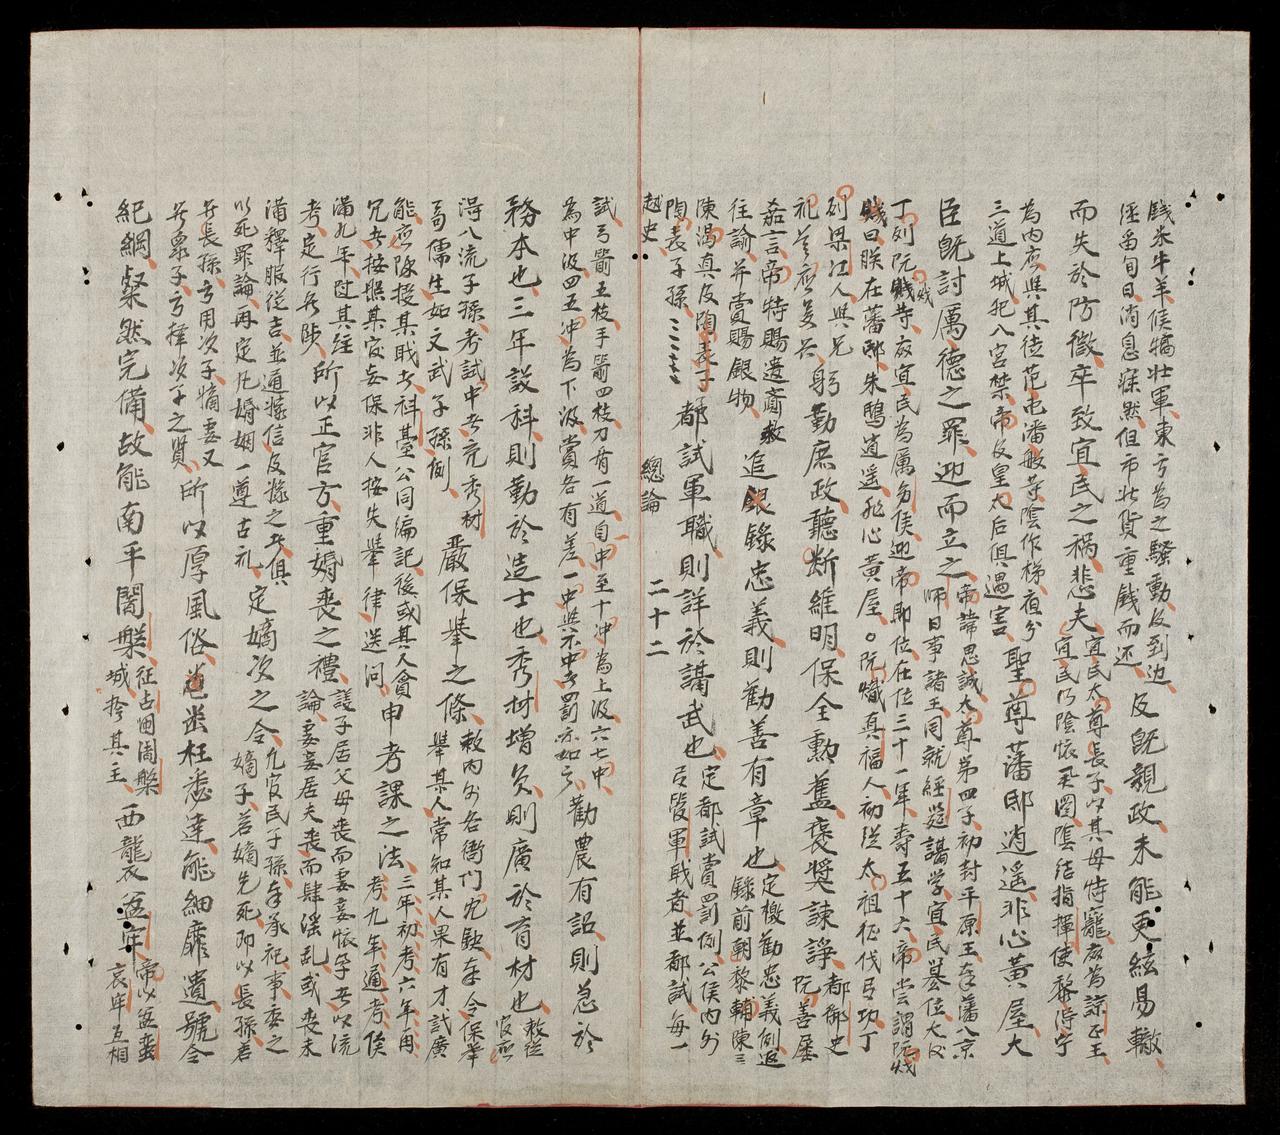 錢米牛羊侯犒壯軍東方為之騷動及到边
經留旬日消息寐然但市北貨重錢而还
及既親政未能更絃易轍
而失於防微卒致宜民之禍悲夫
宜民太尊長子以其母特寵廢為諒山王
宜民乃陰懷
結指揮使黎得宁
為内应與其徒范屯潘般等陰作梯夜分
三道上城犯入宮禁帝及皇太后俱遇害
聖尊藩邸逍遥非心黃屋大
臣既討厲德之罪迎而立之
帝諱思誠太尊第四子初封平原王奉藩入京
師日事諸王同就經筵講学宜民簒位大臣
丁列阮熾等廢宜民為厲旁侯迎帝即位在位三十一年壽五十六帝尝謂阮熾
曰朕在藩邸朱鴟逍遥非心黃屋
阮熾真福人初從太祖征伐有功丁
列梁江人與兄
礼並应美譽
躬勤庶政聽斷維明保全勳舊褒奨諫諍
都御史
阮善屡
嘉言帝特賜遺齋敕
往諭并賞賜銀物
追錄忠義則勸善有章也
定檄勸忠義例返
錄前朝黎輔陳三
陳渴真及陶表子
陶表子孫
都試軍職則詳於講武也
定都試賞罰例公侯内外
有管軍職者並都試每一
越史 總論 二十二
試弓箭五枝手箭四枝刀盾一道自中至十冲為上汲六七中
為中汲四五冲為下汲賞各有差一中與不中者罰亦如之
勸農有詔則急於
務本也三年設科則勤於造士也秀材增員則廣於育材也
敕從
官应
得入流子孫考試中者充秀材
哥儒生如文武子孫例
嚴保舉之條
敕内外各衙門冗缺奉令保舉
舉某人常知某人果有才識廣
能应除授某職者科臺公同編記後或其人貪
冗者按照某官妄保非人按失舉律送问
申考課之法
三年初考六年再
考九年通考俟
滿九年过其經
考定行兵陟
所以正官方重婚喪之禮
議子居父母喪而妻妾懷孕者以流
論妻妾居夫喪而肆淫乱或喪未
滿釋服從吉並通嫁信及嫁之者俱
以死罪論再定凡婚姻一尊古礼
定嫡次之令
凡官民子孫奉承祀事委之
嫡子若嫡先死即以長孫若
無長孫方用次子嫡妻又
無衆子方擇次子之賢
所以厚風俗道崇枉悉達能細靡遺號令
紀綱粲然完備故能南平闍槃
征占圍闍槃
城拴其主
西襲盆牢
帝以盆蛮
哀牢互相